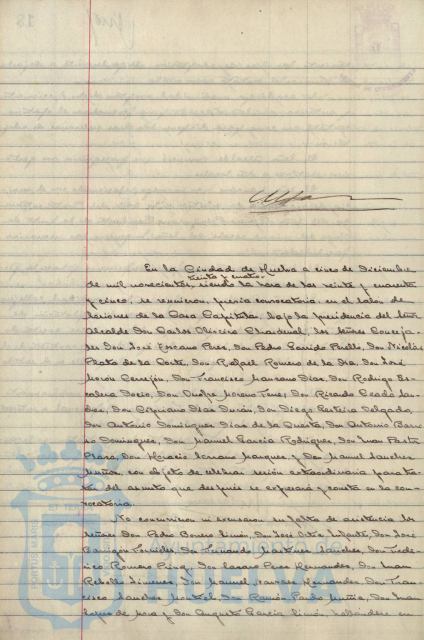 En la Ciudad de Huelva a cinco de Diciembre
treinta y cuatro
de mil novecientos, siendo la hora de las veinte y cuarenta
y cinco, se reunieron, previa convocatoria en el salon de
sesiones de la Casa Capitular, bajo la presidencia del Señor
Alcalde Don Carlos Oliveira Chardenal, los Señores Conceja-
les Don José Escano Pérez, Don Pedro Garrido Perelló, Don Nicolás
de la Corte, Don Rafael Romero de la Don José
Moron Don Francisco Manzano Diaz, Don Rodrigo Es-
Don Moreno Don Ricardo
Don Cipriano Diaz Durán, Don Diego Delgado,
Don Antonio Dominguez Diaz de la Don Antonio Barri-
Dominguez, Don Manuel Garcia Rodriguez, Don Juan
Plaza, Don Horacio Serrano Marquez y Don Manuel Sanchez
Muñoz, con objeto de celebrar sesión extraordinaria para tra-
tar del asunto que despues se expresará y consta en la con-
vocatoria.
No concurrieron ni excusaron su falta de asistencia los
Señores Don Pedro Borrero Limón, Don José Ortiz Infante, Don José
Barrigon Don Fernando Jimenez Sanchez, Don Fede-
rico Romero Perez, Don Lazaro Perez Hernandez, Don Juan
Rebollo Jimenez, Don Manuel Hernandez, Don Fran-
cisco Sanchez Don Ramón Pardo Don Juan
de Mora y Don Augusto Garcia Limón, hallándose en